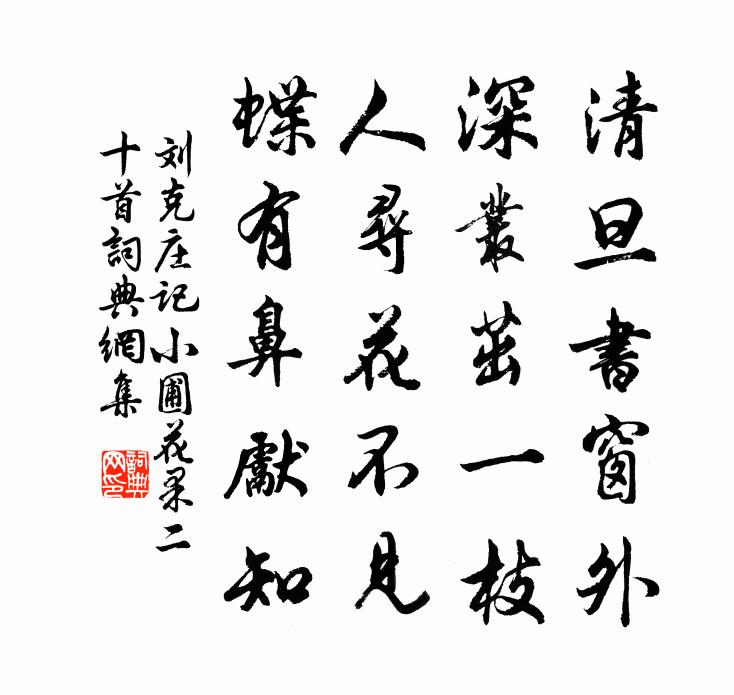 清旦書窗外
深叢茁一枝
人尋花不見
蝶有鼻獻知
刘克庄记小圃花果二
十首詞典網集
詞典网印